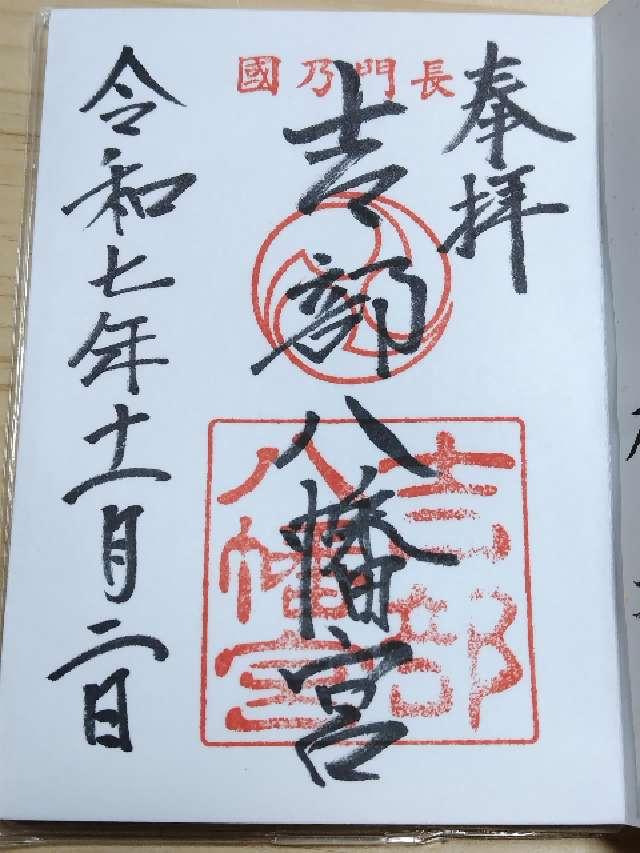 奉拝
長門乃國
吉部八幡宮
吉部
八幡宮
令和七年十一月二日